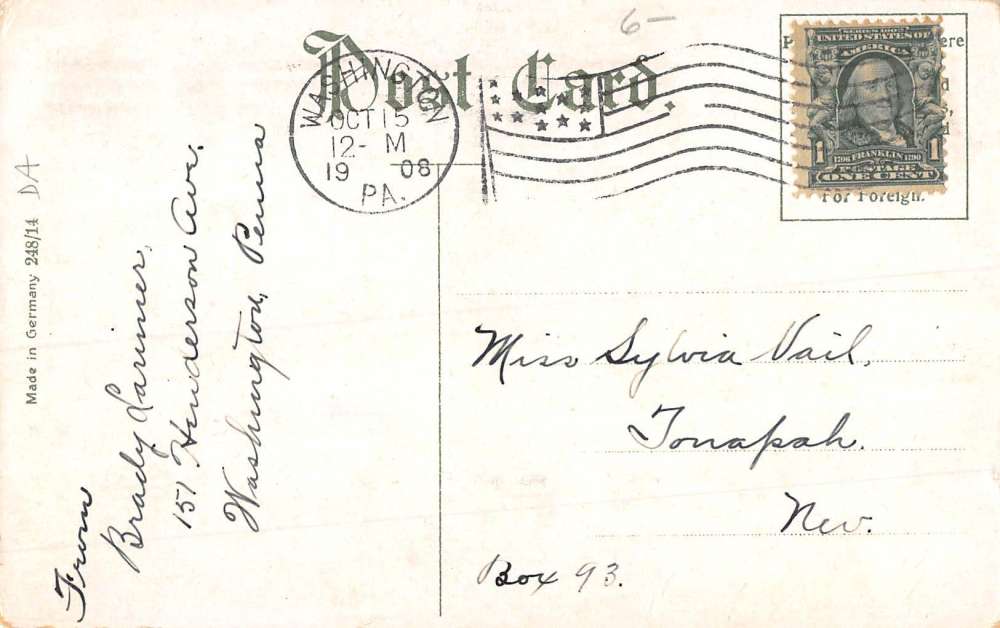 6-
Post Card.
WASHINGTON
OCT 15
12- M
19 08
PA.
SERIES 1902
UNITED STATES OF
AMERICA
1 1706 FRANKLIN 1790 1
POSTAGE
ONE CENT
For Foreign.
Made in Germany 248/14 DA
From
Brady Larimer,
157 Henderson Ave.
Washington, Penna
Miss Sylvia Vail,
Tonapah.
Nev.
Box 93.